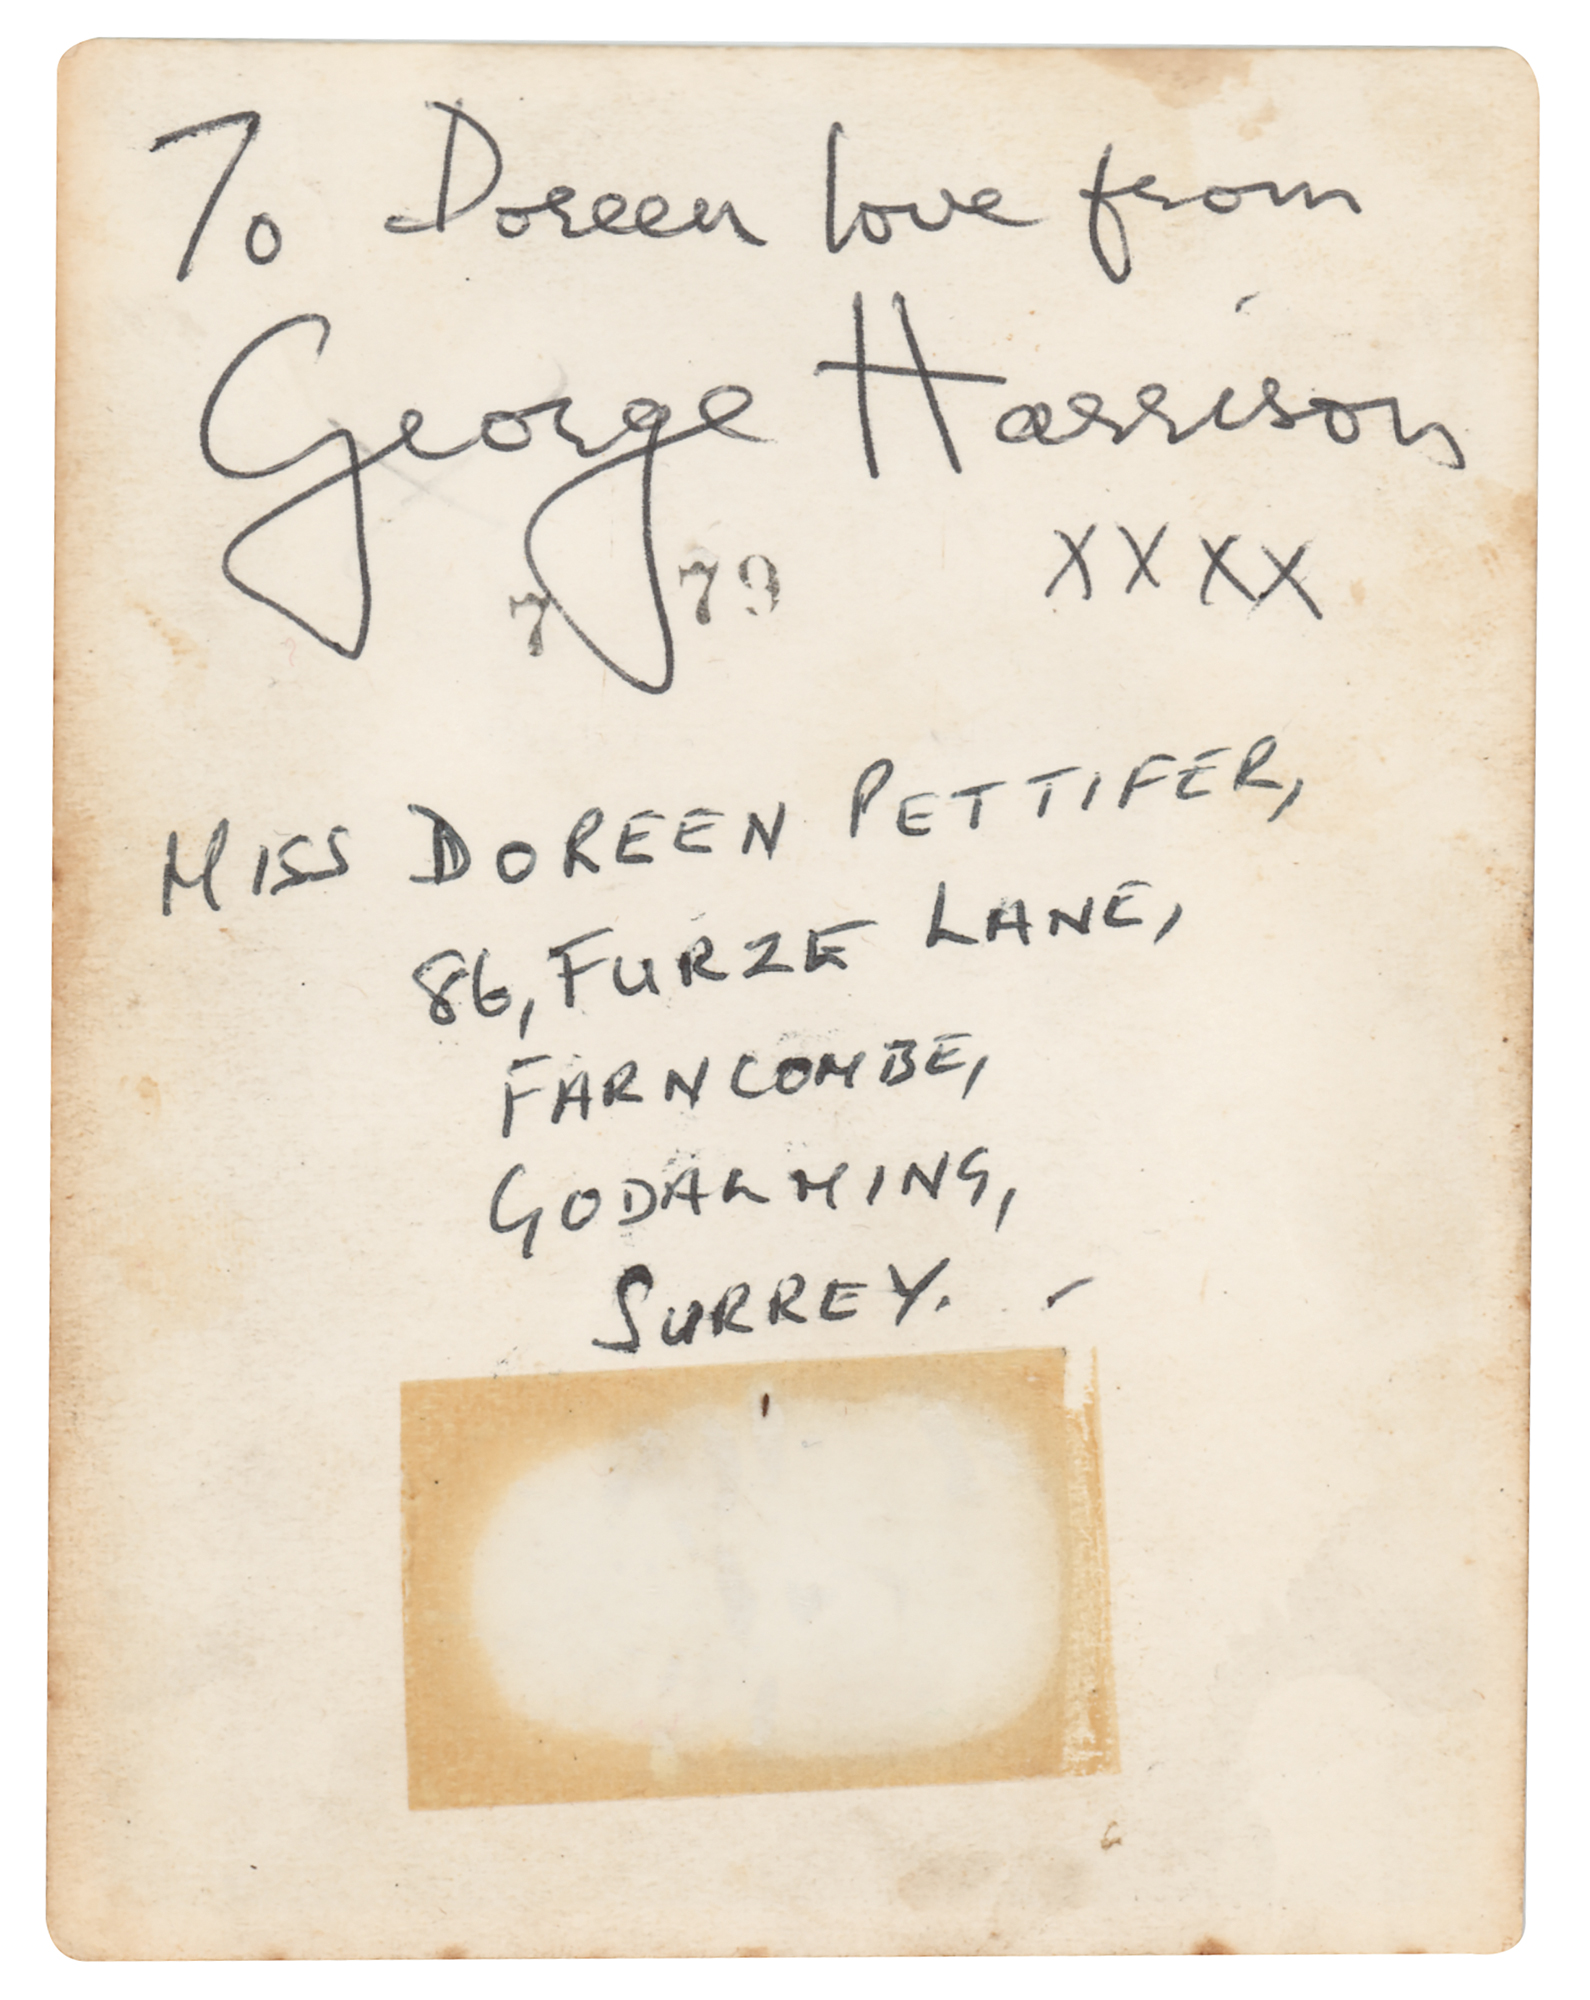 To Doreen love from
George Harrison
xxxx
7 79
MISS DOREEN PETTIFER,
86, FURZE LANE,
FARNCOMBE,
GODALMING,
SURREY. -